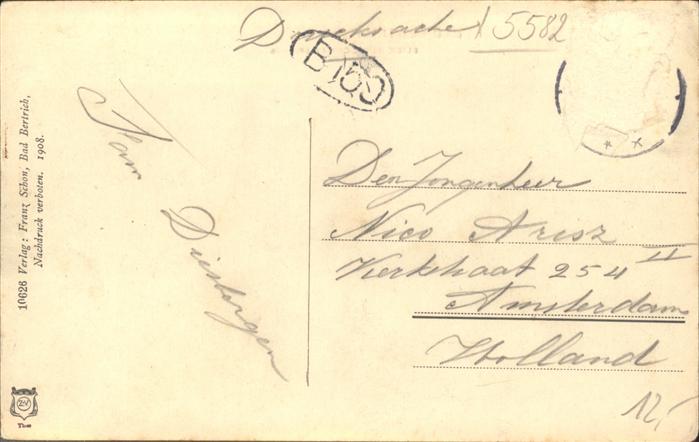 Drucksache
5582
B 150
10626 Verlag: Franz Schon, Bad Bertrich,
Nachdruck verboten. 1908.
Diesbergen
Den Jongenheer
Nico Aresz
Kerkstraat 254 II
Amsterdam
Holland
12,-